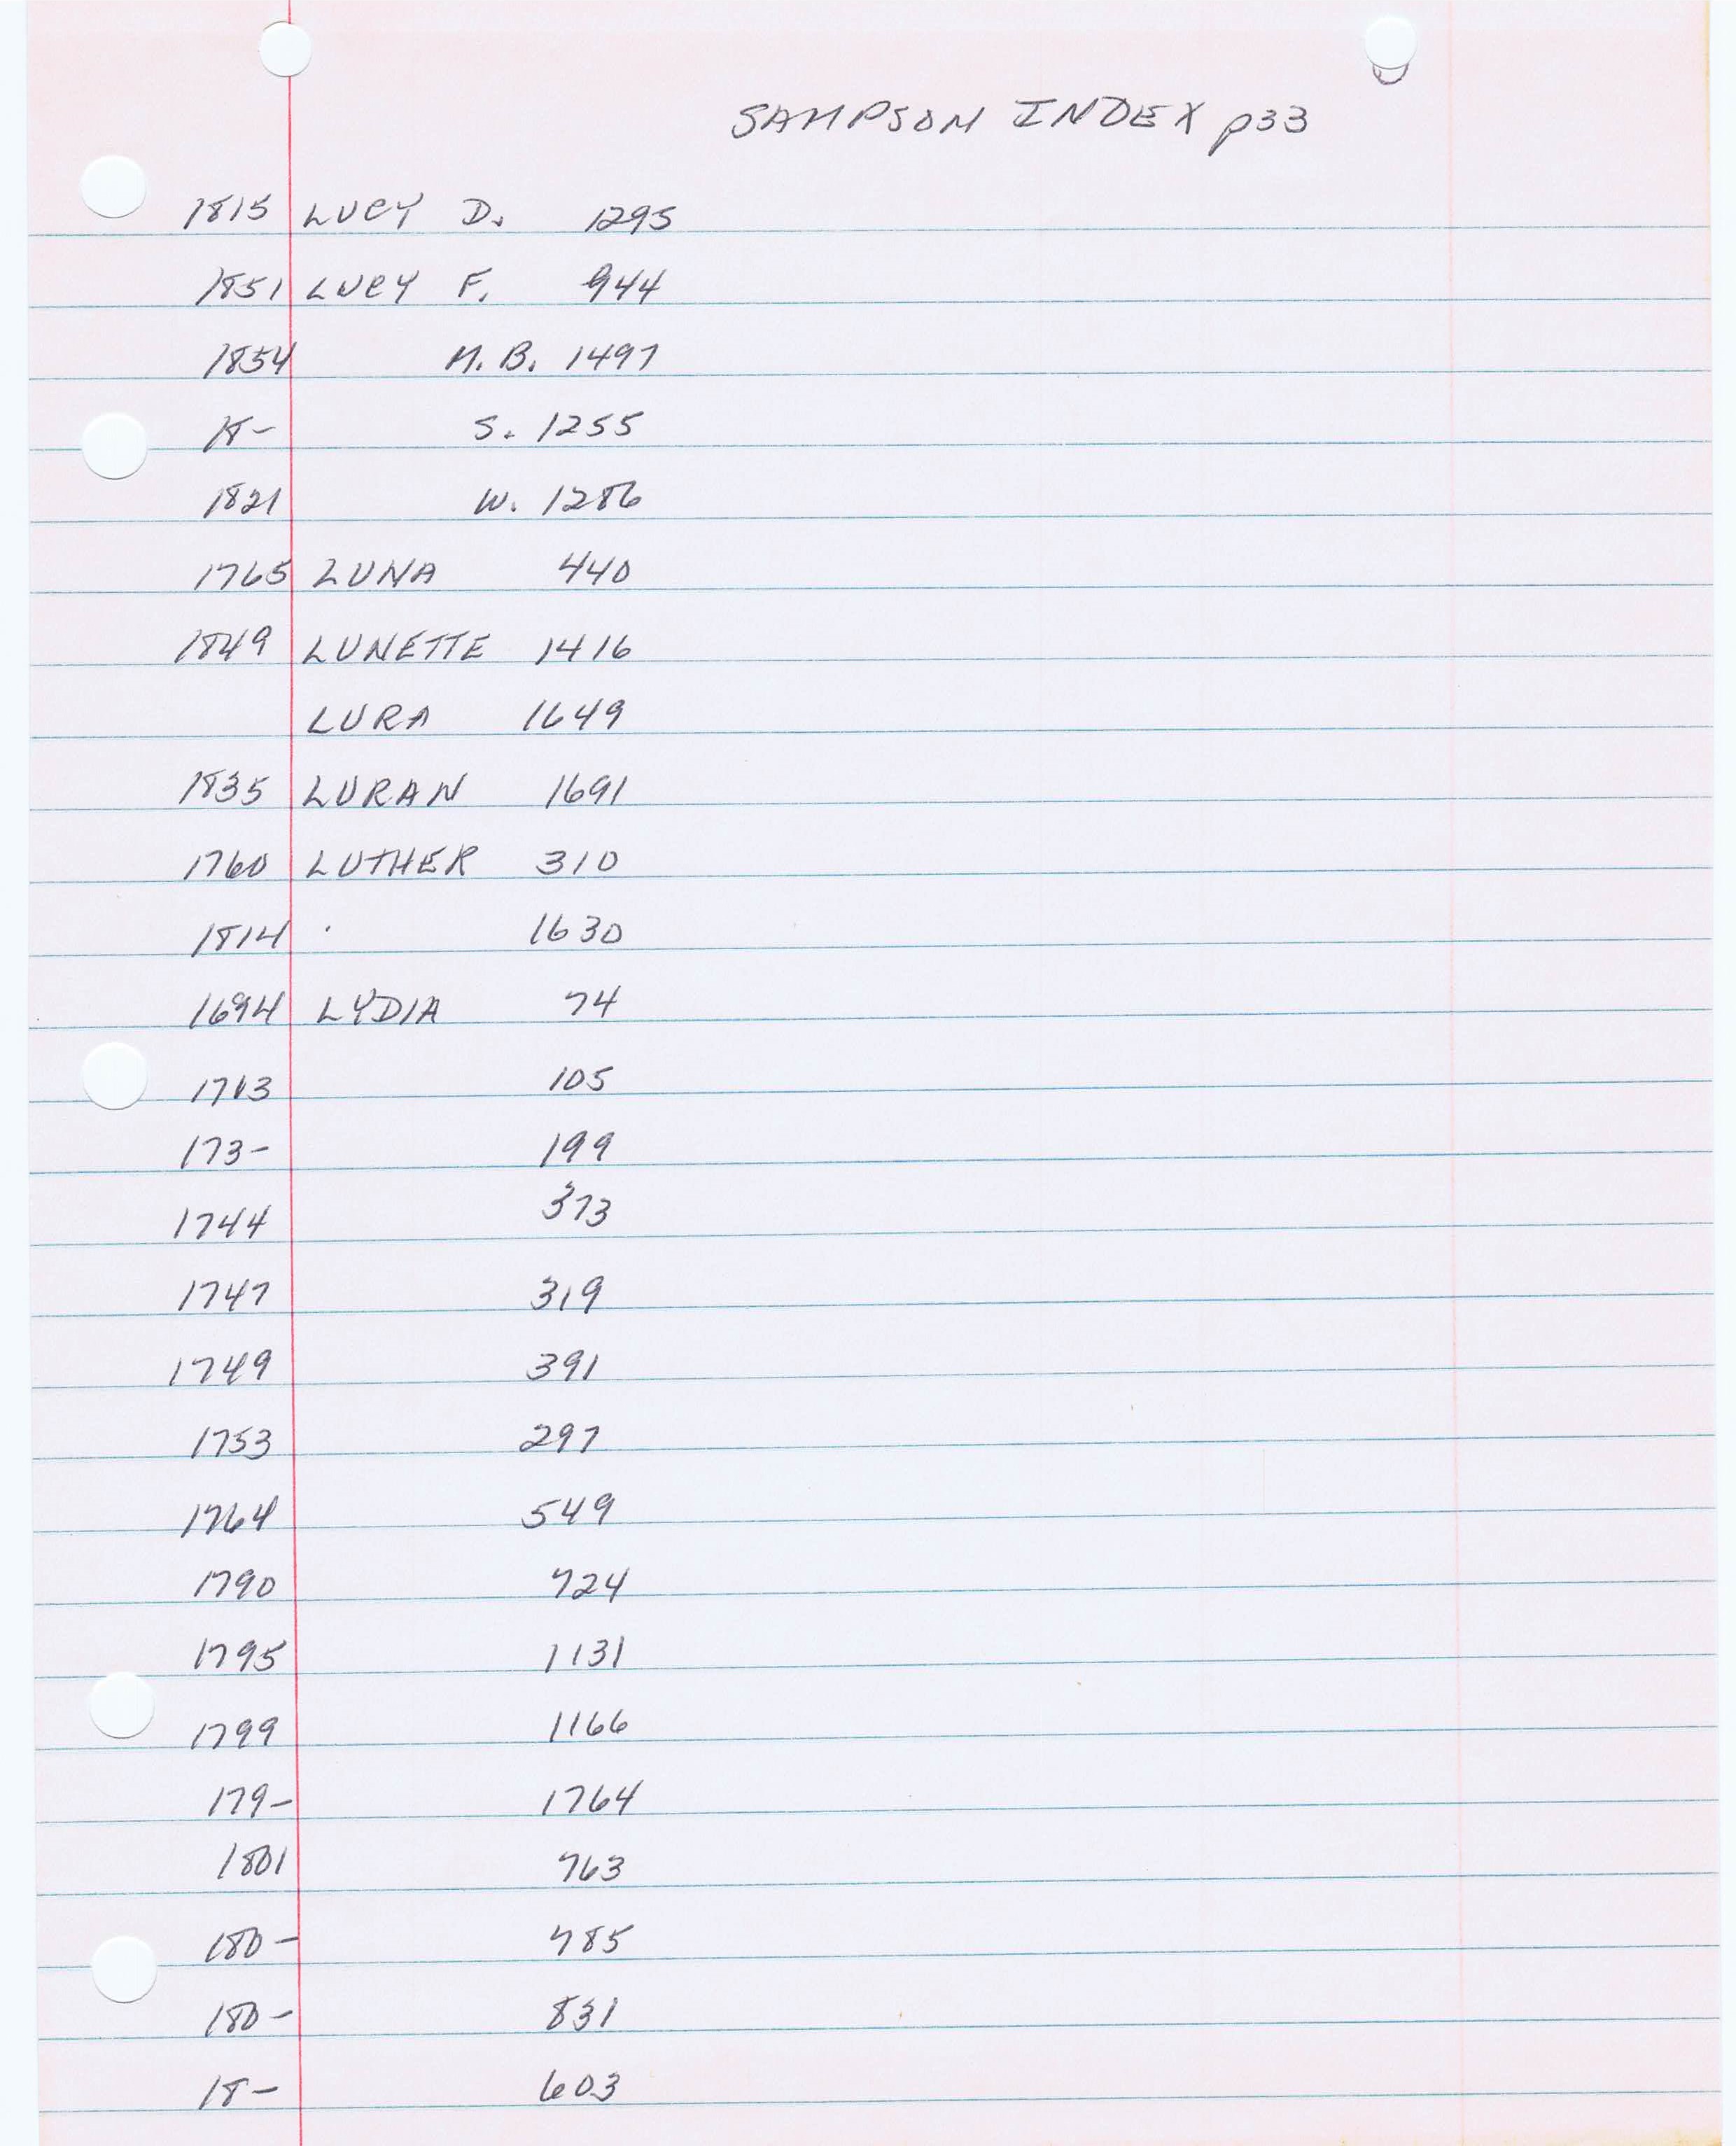 SAMPSON INDEX p33
1815 LUCY D. 1295
1851 LUCY F. 944
1854 M.B. 1497
18- S. 1255
1821 W. 1286
1765 LUNA 440
1849 LUNETTE 1416
LURA 1649
1835 LURAN 1691
1760 LUTHER 310
1814 1630
1694 LYDIA 74
1713 105
173- 199
1744 373
1747 319
1749 391
1753 297
1764 549
1790 724
1795 1131
1799 1166
179- 1764
1801 763
180- 785
180- 831
18- 603